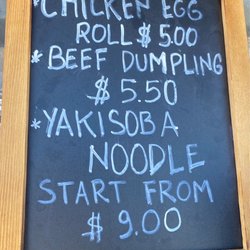 *CHICKEN EGG
ROLL $ 5.00
*BEEF DUMPLING
$ 5.50
*YAKISOBA
NOODLE
START FROM
$ 9.00